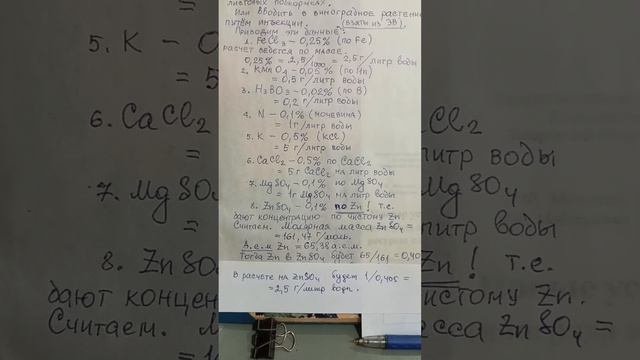 листовых подкормках.
Или вводить в виноградное растение
путём инъекции. (взяты из ЭВ)
Приводим эти данные:
1. FeCl3 - 0,25% (по Fe)
расчёт ведётся по массе.
0,25% = 2,5/1000 = 2,5 г/литр воды
2. KMnO4 - 0,05% (по Mn)
= 0,5 г/литр воды
3. H3BO3 - 0,02% (по B)
= 0,2 г/литр воды
4. N - 0,1% (мочевина)
= 1 г/литр воды
5. K - 0,5% (KCl)
= 5 г/литр воды
6. CaCl2 - 0,5% по CaCl2
= 5 г CaCl2 на литр воды
7. MgSO4 - 0,1% по MgSO4
= 1 г MgSO4 на литр воды
8. ZnSO4 - 0,1% по Zn! т.е.
дают концентрацию по чистому Zn.
Считаем. Молярная масса ZnSO4 =
= 161,47 г/моль.
а.е.м Zn = 65,38 а.е.м.
Тогда Zn в ZnSO4 будет 65/161 = 0,40
В расчёте на ZnSO4 будет 1/0,405 =
= 2,5 г/литр воды.
5. K -
= 5
6. CaCl2
=
7. MgSO
=
8. Zn
дают
Считаем.
CaCl2
литр воды
gSO4
литр воды
! т.е.
чистому Zn.
масса ZnSO4 =